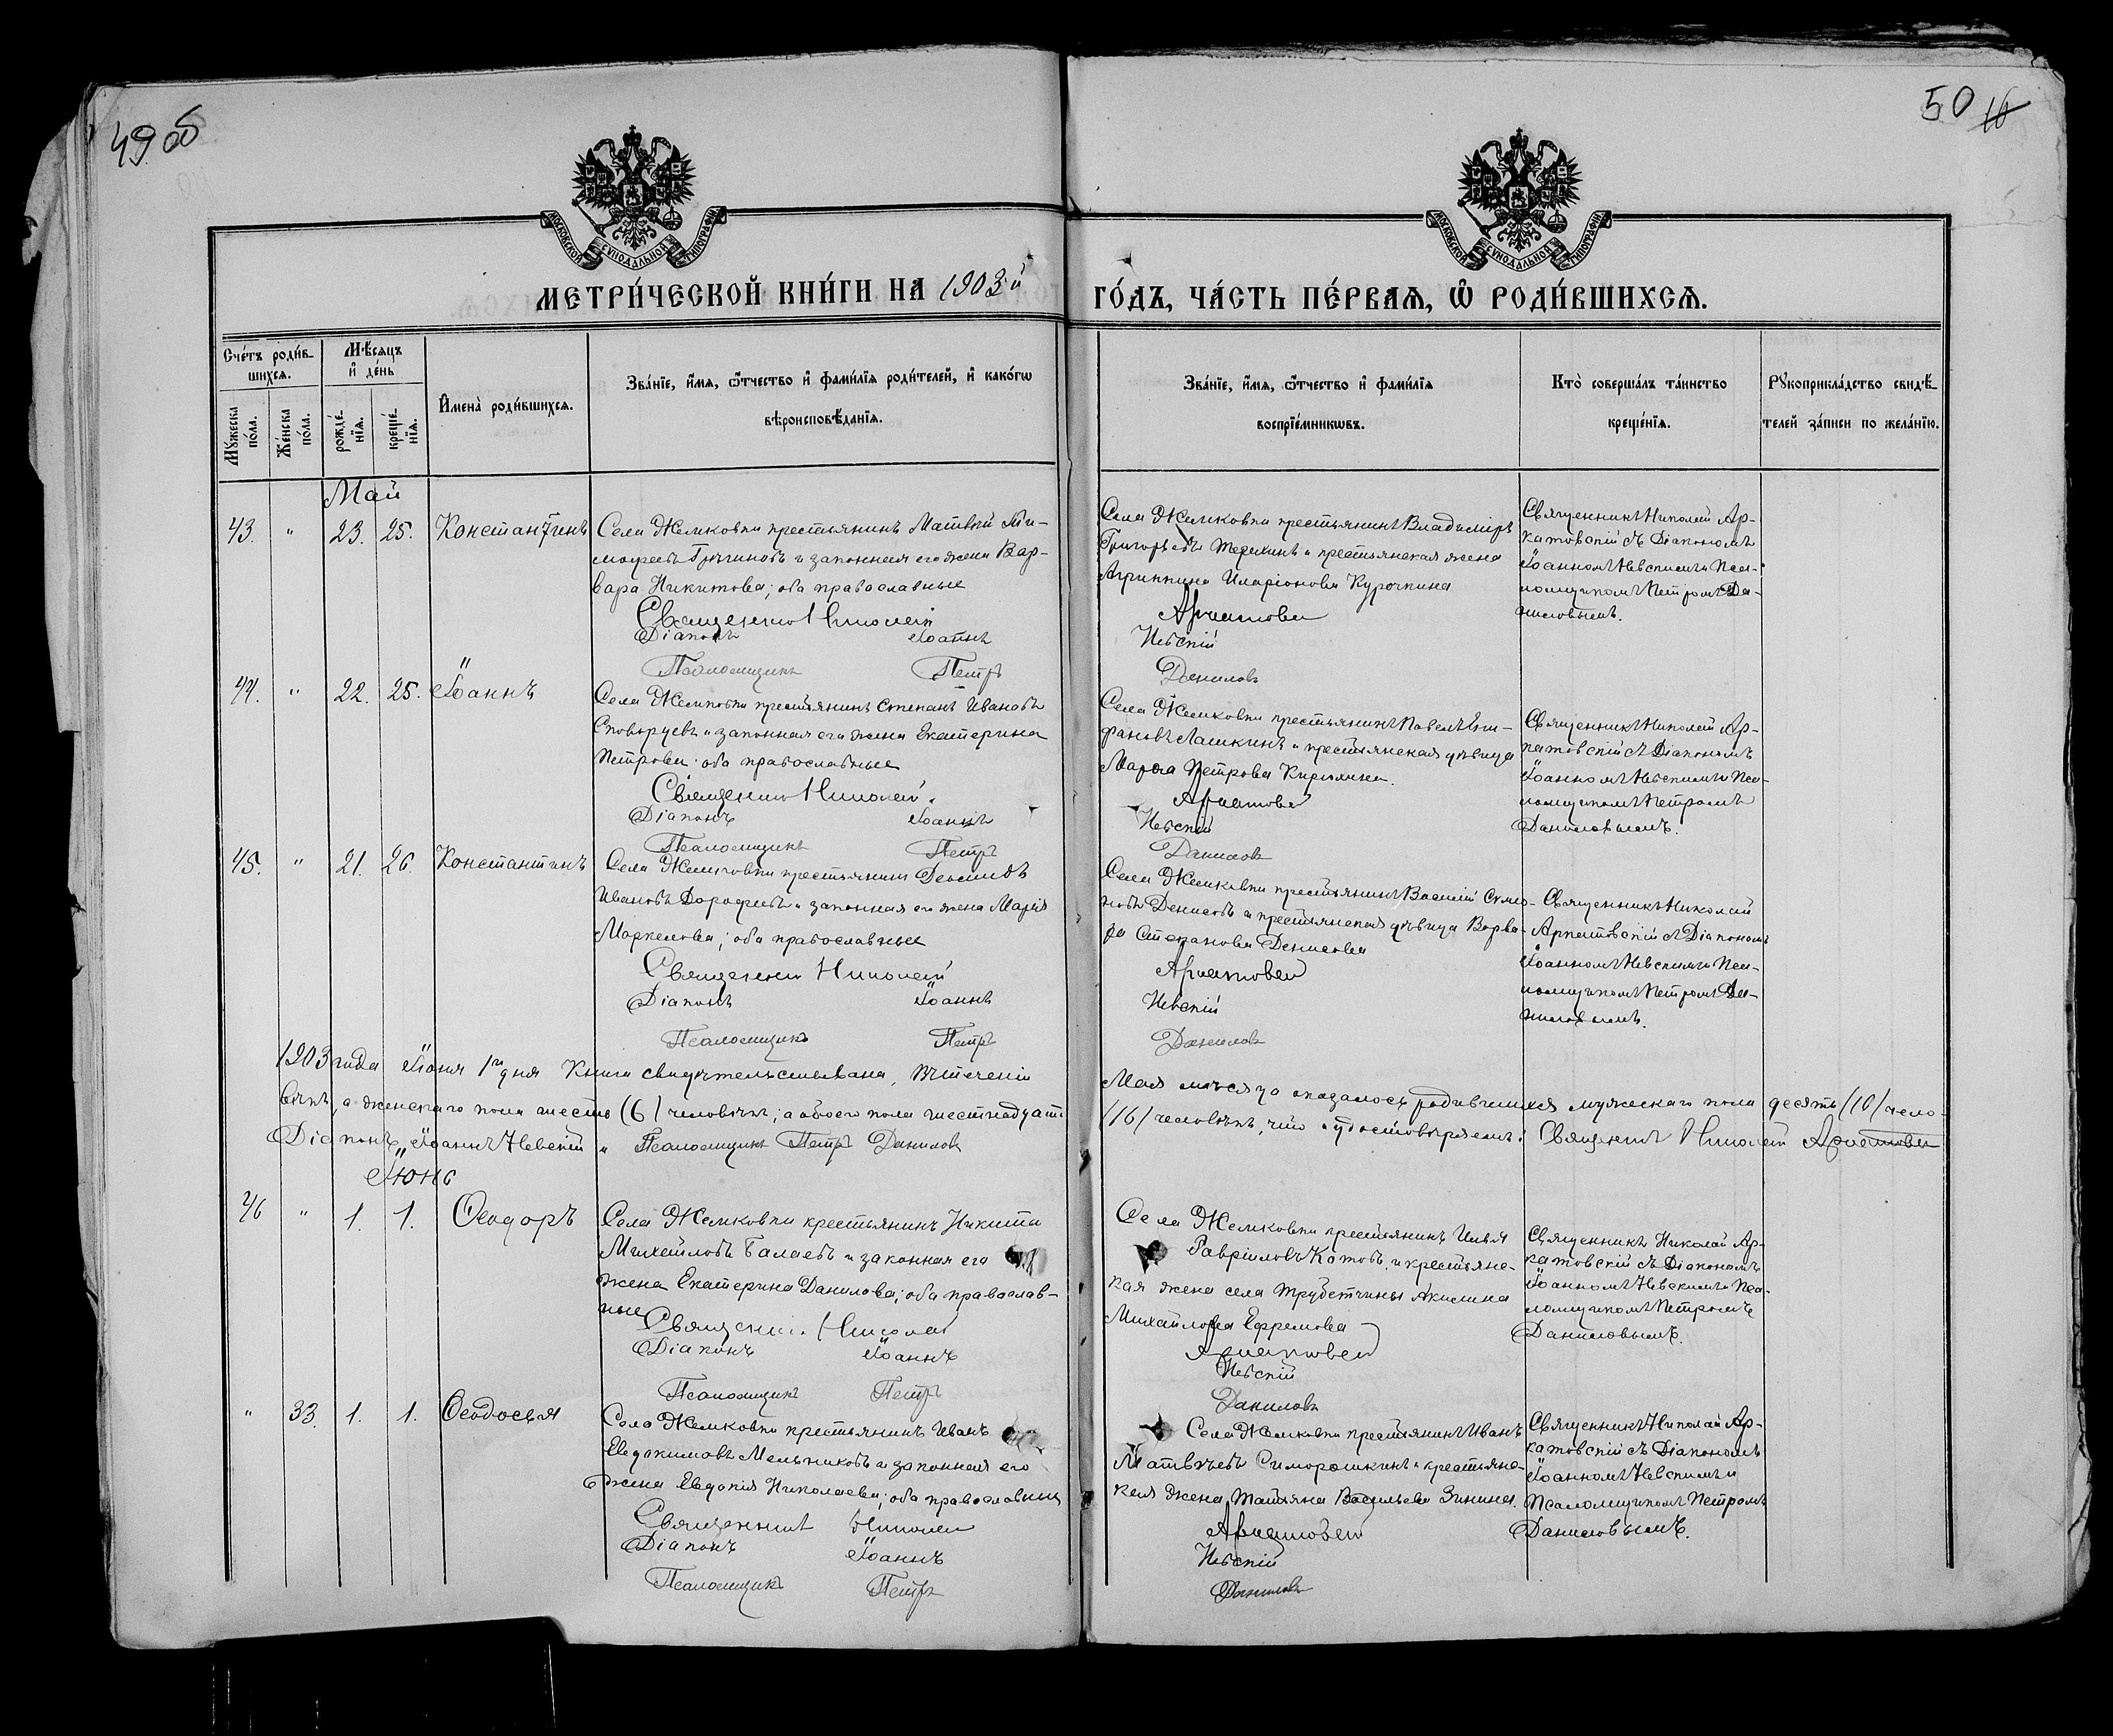 49 об
50 16
МОСКОВСКОЙ СѴНОДАЛЬНОЙ ТИПОГРАФІИ
МОСКОВСКОЙ СѴНОДАЛЬНОЙ ТИПОГРАФІИ
МЕТРИ́ЧЕСКОЙ КНИ́ГИ НА 1903й
ГО́ДЪ, ЧА́СТЬ ПЕ́РВАѦ, Ѡ РОДИ́ВШИХСѦ.
Сче́тъ роди́в-
шихсѧ.
Мѣ́сѧцъ
и де́нь
Мꙋ́жеска по́ла.
Же́нска по́ла.
рожде́нїѧ.
креще́нїѧ.
Имена̀ роди́вшихсѧ.
Зва́нїе, и́мѧ, ѻ́тчество и фами́лїѧ роди́телей, и како́гѡ
вѣроисповѣ́данїѧ.
Зва́нїе, и́мѧ, ѻ́тчество и фами́лїѧ
воспрїе́мникѡвъ.
Кто̀ соверша́лъ та́инство
креще́нїѧ.
Рꙋкоприкла́дство свидѣ́-
телей за́писи по жела́нїю.
Май
43. " 23. 25. Константинъ
Села Жемковки крестьянинъ Матвѣй Ти-
моѳеевъ и законная его жена Вар-
вара Никитова; оба православные
Священникъ Николай
Діаконъ Іоаннъ
Псаломщикъ Петръ
Села Жемковки крестьянинъ Владиміръ
Григорьевъ и крестьянская жена
Агриппина Иларіонова Курочкина
Аркатовскій
Невскій
Данилов
Священникъ Николай Ар-
катовскій съ Діакономъ
Іоанномъ Невскимъ и Пса-
ломщикомъ Петромъ Да-
ниловымъ.
44. " 22. 25. Іоаннъ
Села Жемковки крестьянинъ Степанъ Ивановъ
и законная его жена Екатерина
Петрова; оба православные
Священникъ Николай
Діаконъ Іоаннъ
Псаломщикъ Петръ
Села Жемковки крестьянинъ Павелъ Епи-
фановъ Лашкинъ и крестьянская дѣвица
Марѳа Петрова
Аркатовскій
Невскій
Данилов
Священникъ Николай Ар-
катовскій съ Діакономъ
Іоанномъ Невскимъ и Пса-
ломщикомъ Петромъ
Даниловымъ.
45. " 21. 26. Константинъ
Села Жемковки крестьянинъ
Ивановъ Дороѳеевъ и законная его жена Марія
Маркелова; оба православные
Священникъ Николай
Діаконъ Іоаннъ
Псаломщикъ Петръ
Села Жемковки крестьянинъ Василій Симо-
новъ Денисовъ и крестьянская дѣвица Варва-
ра Степанова Денисова
Аркатовскій
Невскій
Данилов
Священникъ Николай
Аркатовскій съ Діакономъ
Іоанномъ Невскимъ и Пса-
ломщикомъ Петромъ Да-
ниловымъ.
1903 года Іюня 1го дня Книга свидѣтельствована, въ теченіи
Мая мѣсяца оказалось родившихся мужескаго пола десять (10) чело-
вѣкъ, а женскаго пола шесть (6) человѣкъ; а обоего пола шестнадцать
(16) человѣкъ, что и удостовѣряемъ: Священникъ Николай Аркатовскій
Діаконъ Іоаннъ Невскій " Псаломщикъ Петръ Данилов
Іюнь
46 " 1. 1. Ѳеодоръ
Села Жемковки крестьянинъ Никита
Михайловъ Балаевъ и законная его
жена Екатерина Данилова; оба православ-
ные
Священникъ Николай
Діаконъ Іоаннъ
Псаломщикъ Петръ
Села Жемковки крестьянинъ Илья
Гавріиловъ Котовъ и крестьянс-
кая жена села Трубетчины Акилина
Михайлова Ефремова
Аркатовскій
Невскій
Данилов
Священникъ Николай Ар-
катовскій съ Діакономъ
Іоанномъ Невскимъ и Пса-
ломщикомъ Петромъ
Даниловымъ.
" 33. 1. 1. Ѳеодосья
Села Жемковки крестьянинъ Иванъ
Евдокимовъ Мельниковъ и законная его
жена Евдокія Николаева; оба православные
Священникъ Николай
Діаконъ Іоаннъ
Псаломщикъ Петръ
Села Жемковки крестьянинъ Иванъ
Матвѣевъ Симорошкинъ и крестьянс-
кая жена Татьяна Васильева Зинина.
Аркатовскій
Невскій
Данилов
Священникъ Николай Ар-
катовскій съ Діакономъ
Іоанномъ Невскимъ и
Псаломщикомъ Петромъ
Даниловымъ.